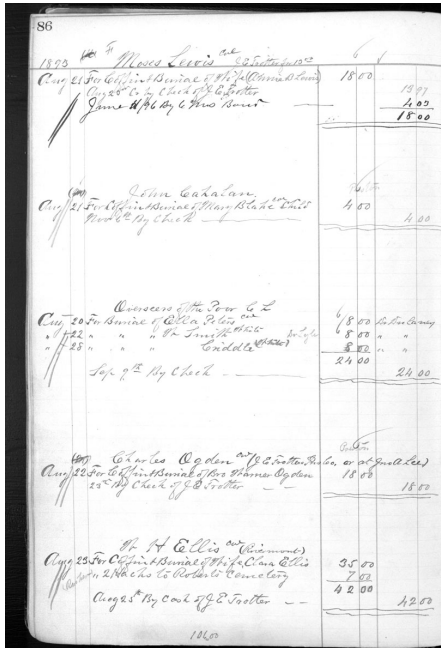 86
1893 Moses Lewis col J E Trotter
Aug 21 For Coffin & Burial of Wife (Annie D Lewis) 18 00
Aug 25th Co by Check of J E Trotter 13 97
June 11/96 By C 4 03
18 00
John Cahalan
Aug 21 For Coffin & Burial of Mary Blake col Child 4 00
Nov 6th By Check 4 00
Overseers of the Poor C L
Aug 20 For Burial of Ella Peters col 8 00
" 22 " " " Wm Smith White 8 00 " "
" 28 " " " Criddle (White) 8 00 " "
24 00
Sep 9th By Check 24 00
Charles Ogden col (J E Trotter, or at Jno A Lee)
Aug 22 For Coffin & Burial of Bro Warner Ogden 18 00
23rd By Check of J E Trotter 18 00
W H Ellis col (Rivermont)
Aug 23 For Coffin & Burial of Wife, Clara Ellis 35 00
" 2 Hacks to Roberts Cemetery 7 00
42 00
Aug 25th By Cash of J E Trotter 42 00
106 00